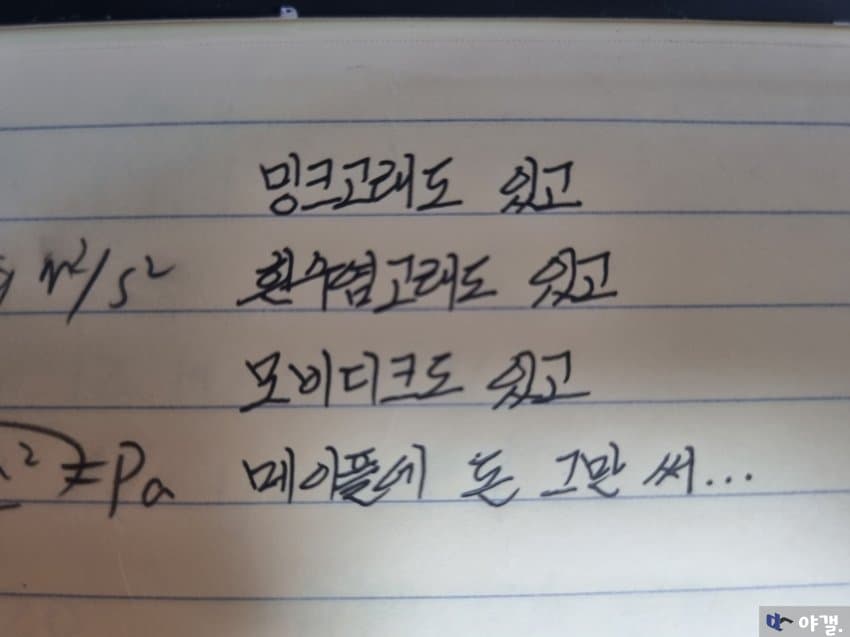 밍크고래도 있고
m²/s² 흰수염고래도 있고
모비디크도 있고
² ≠ Pa 메이플에 돈 그만 써...
야갤.